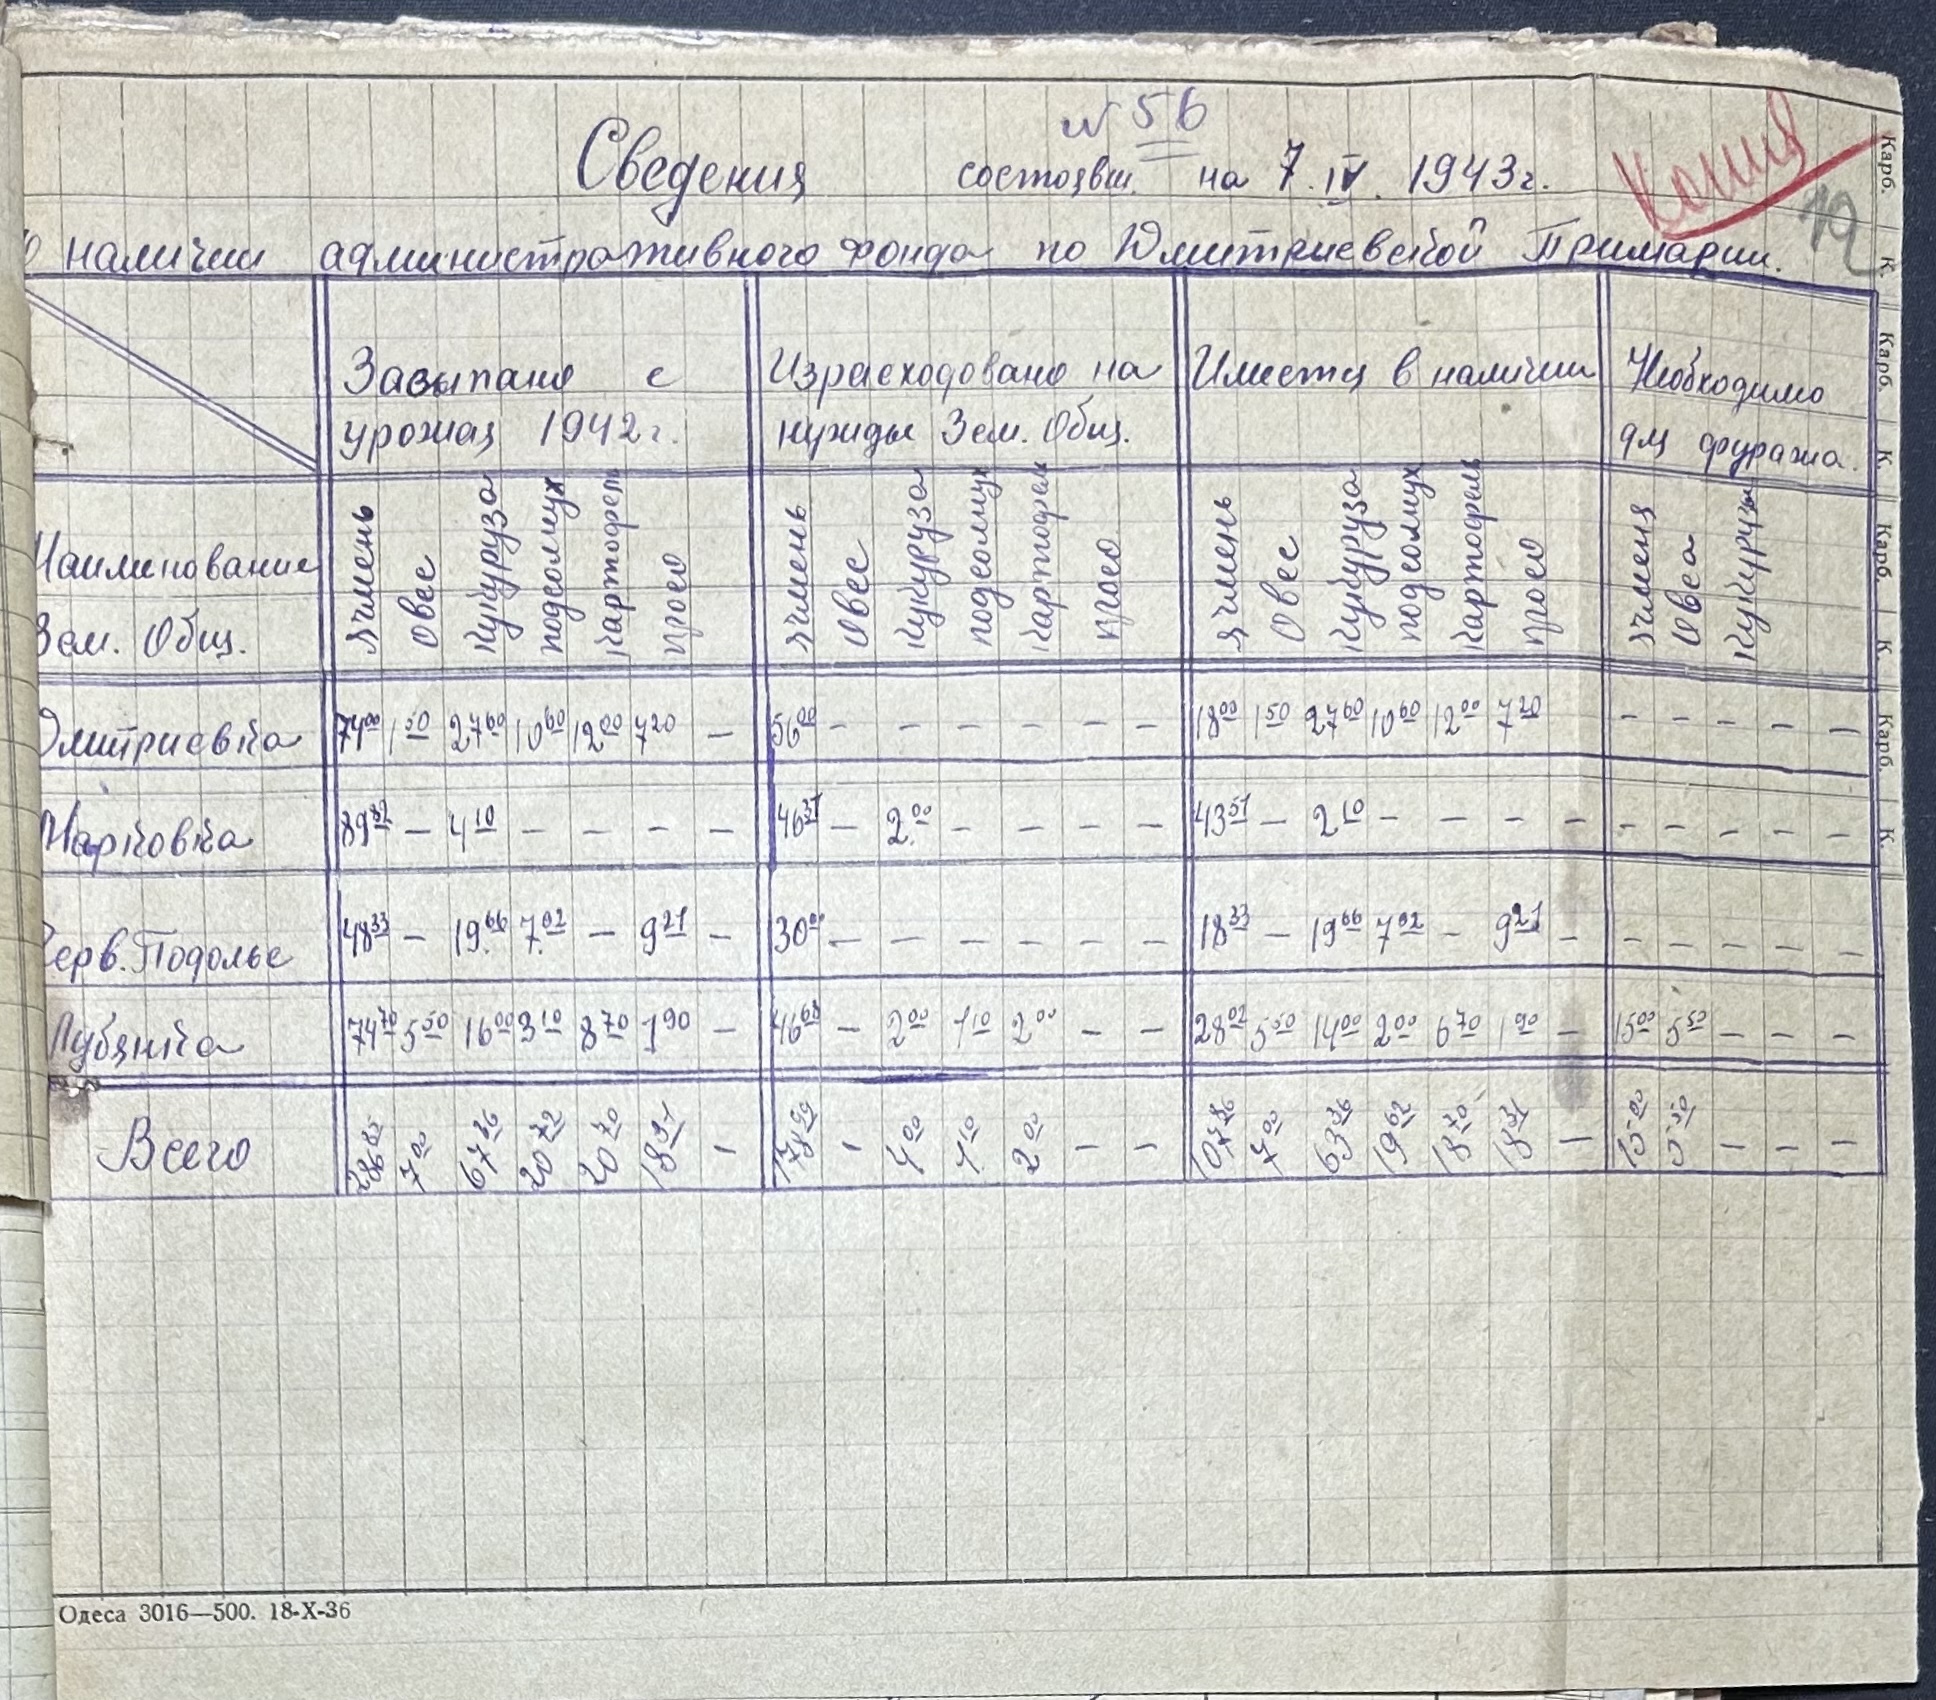 N 56
Копия
Сведения состоявш. на 7.IV.1943г.
19
о наличии административного фонда по Дмитриевской Примарии.
Засыпано с урожая 1942г. Израсходовано на нужды Зем. Общ. Имеетця в наличии Необходимо для фуража.
Наиминование Зем. Общ. Ячмень Овес Кукуруза подсолнух Картофель просо Ячмень Овес Кукуруза подсолнух Картофель просо Ячмень Овес Кукуруза подсолнух Картофель просо Ячменя Овса Кукурузы
Дмитриевка 74 00 1 50 27 60 10 60 12 00 7 20 – 56 00 – – – – – – 18 00 1 50 27 60 10 60 12 00 7 20 – – – – –
Марковка 89 82 – 4 10 – – – – 46 31 – 2 00 – – – – 43 51 – 2 10 – – – – – – – – –
Черв. Подолье 48 33 – 19 66 7 02 – 9 21 – 30 00 – – – – – – 18 33 – 19 66 7 02 – 9 21 – – – – – –
Лубянка 74 70 5 50 16 00 3 10 8 70 1 90 – 46 68 – 2 00 1 10 2 00 – – 28 02 5 50 14 00 2 00 6 70 1 90 – 15 00 5 50 – – –
Всего 286 85 7 00 67 36 20 72 20 70 18 31 – 178 99 – 4 00 1 10 2 00 – – 107 86 7 00 63 36 19 62 18 70 18 31 – 15 00 5 50 – – –
Карб. К. Карб. К. Карб. К. Карб. К.
Одеса 3016—500. 18-X-36